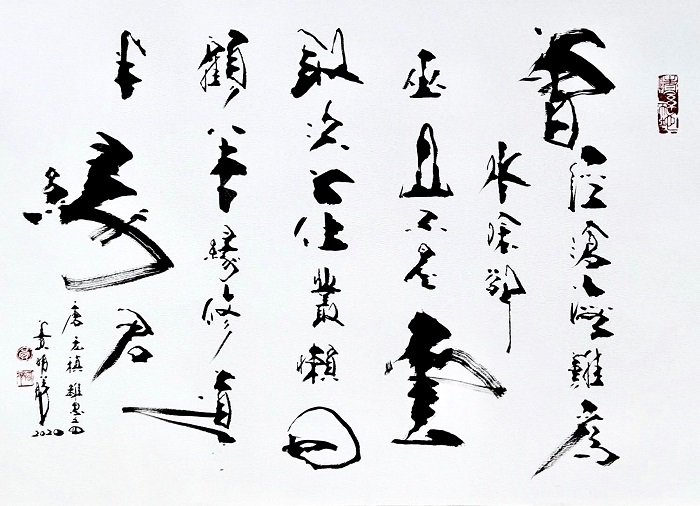 曾經滄海難為
水除卻
巫山不是雲
取次花叢懶回
顧半緣修道
半緣君
唐元稹離思之四
2020